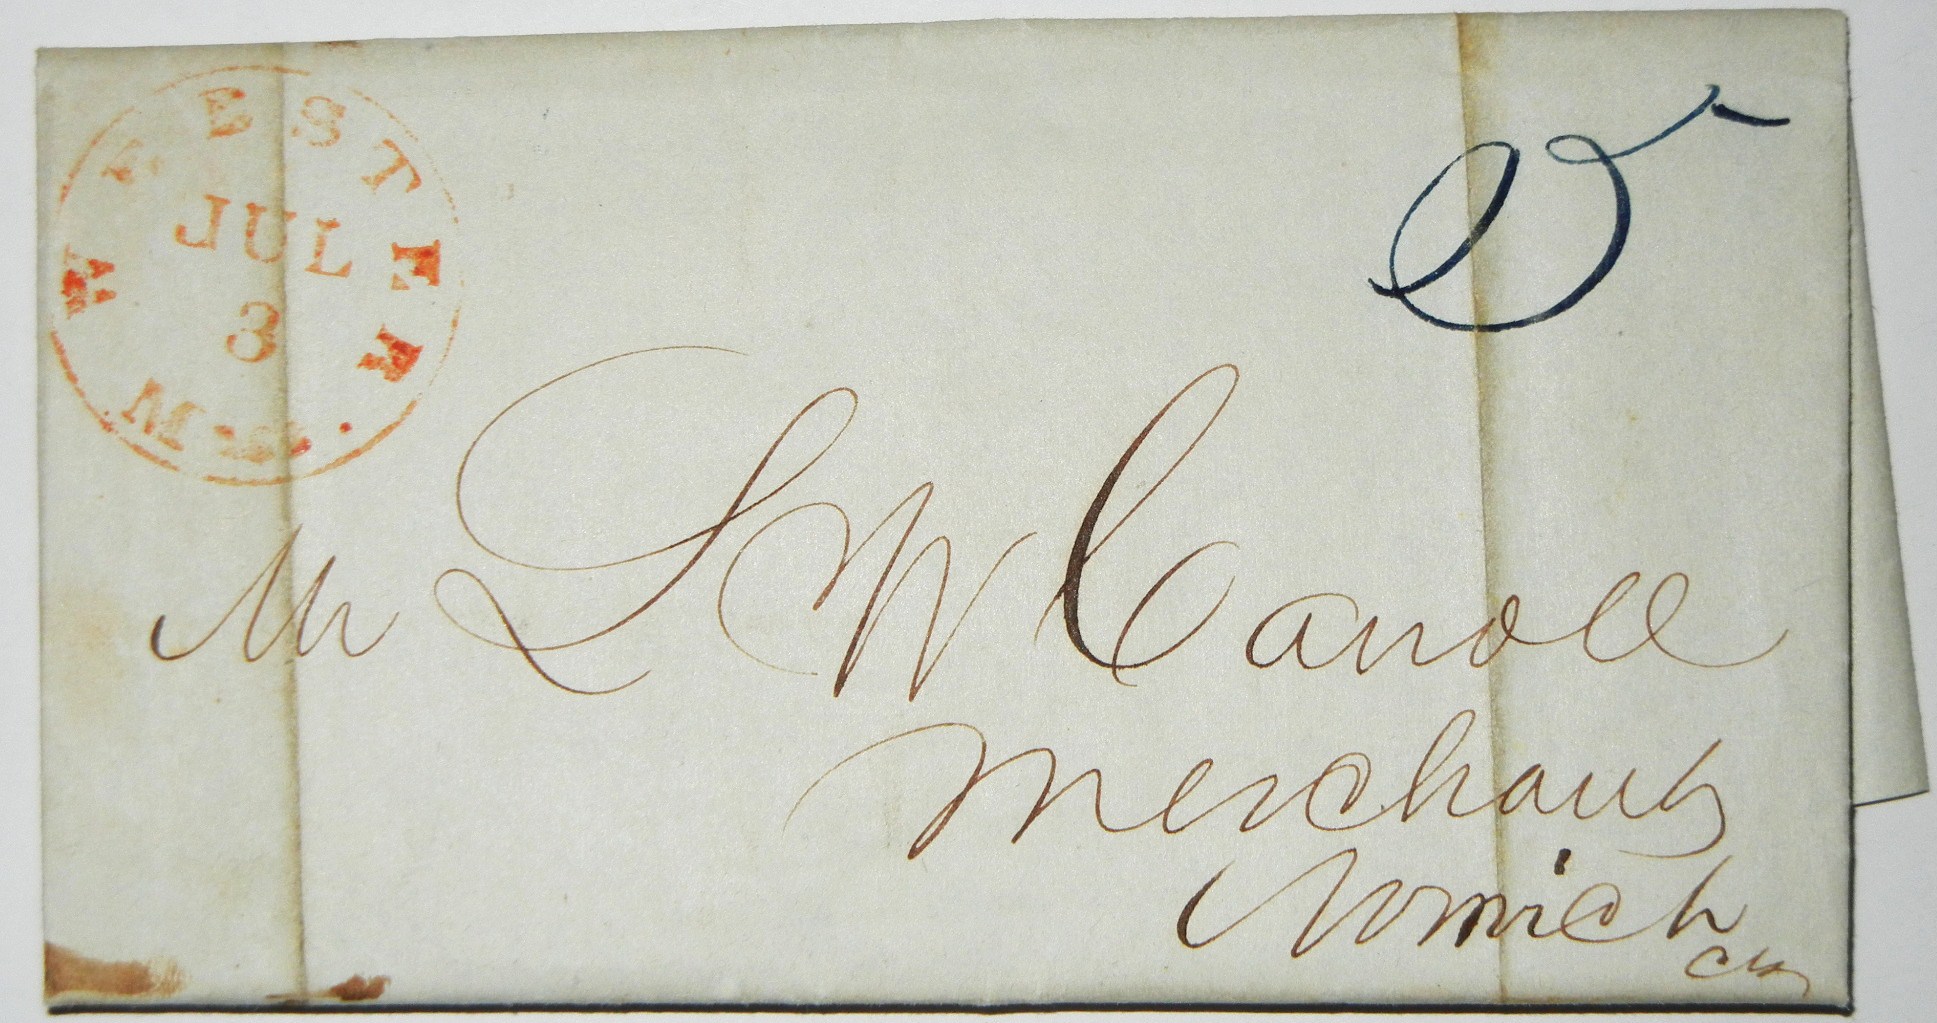 WEBSTER
JUL
3
MS.
5
Mr L W Carroll
Merchant
Norwich
Ct